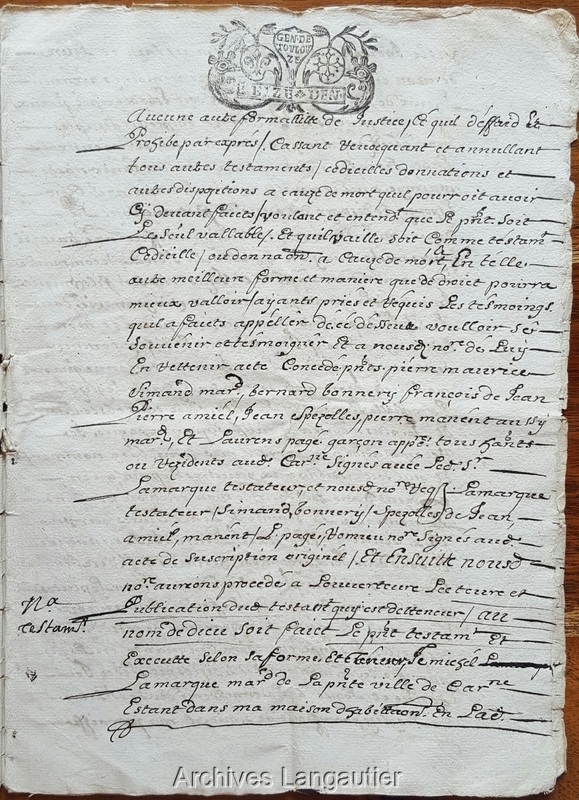 GEN. DE
TOULOU
ZE
Aucune autre formallitte de Justice, Ce quil deffand Et
Prohibe par exprés / Cassant revocquant et annullant
tous autres testaments / codicilles donnations et
autres dispozitions a cauze de mort quil pourroit avoir
Cy devant faicts / voulant et entend. que le pnt. soit
Le seul vallable /. Et quil vaille soit Comme testam.
Codicille / ou donnaon. a Cauze de mort, En telle
autre meilleur forme et maniere que de droict pourra
mieux valloir / ayants pries et requis Les tesmoings
quil a faicts appeller de ce dessus voulloir sen
souvenir et tesmoigner Et a nousd. nore. de Luy
En rettenir acte Concedé pnts. pierre maurice
Simand mard. bernard bonnery françois de Jean
Pierre amiel, Jean Spezolles, pierre manent aussy
mards. Et Laurens pagé garçon appre. tous hants
ou rezidents aud. Carne signés avec Led. Sr.
Lamarque testateur, et nousd. nore. Req. / Lamarque
testateur / Simand, bonnery / Spezolles / de Jean,
amiel, manent, / L. pagé, Romieu nore. signés aud.
acte de suscription originel / Et Ensuitte nousd.
nore. aurions procedé a Louverteure Lecteure et
Publication dud. testant. quy est de tteneur / au
nom de dieu soit faict Le pnt. testam. Et
Executté selon sa forme Et teneur, Je michel
Lamarque mard. de La pnte ville de Carne
Estant dans ma maison dhabittaon. En Lad.
Na
testamt.
Archives Langautier